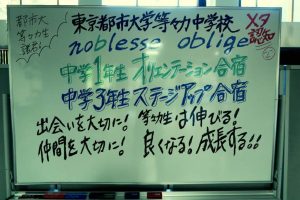 都市大
等々力生
諸君!
東京都市大学等々力中学校
noblesse oblige
メタ
認知
中学1年生 オリエンテーション合宿
中学3年生 ステージアップ合宿
出会いを大切に! 等々力生は伸びる!
仲間を大切に! 良くなる! 成長する!!